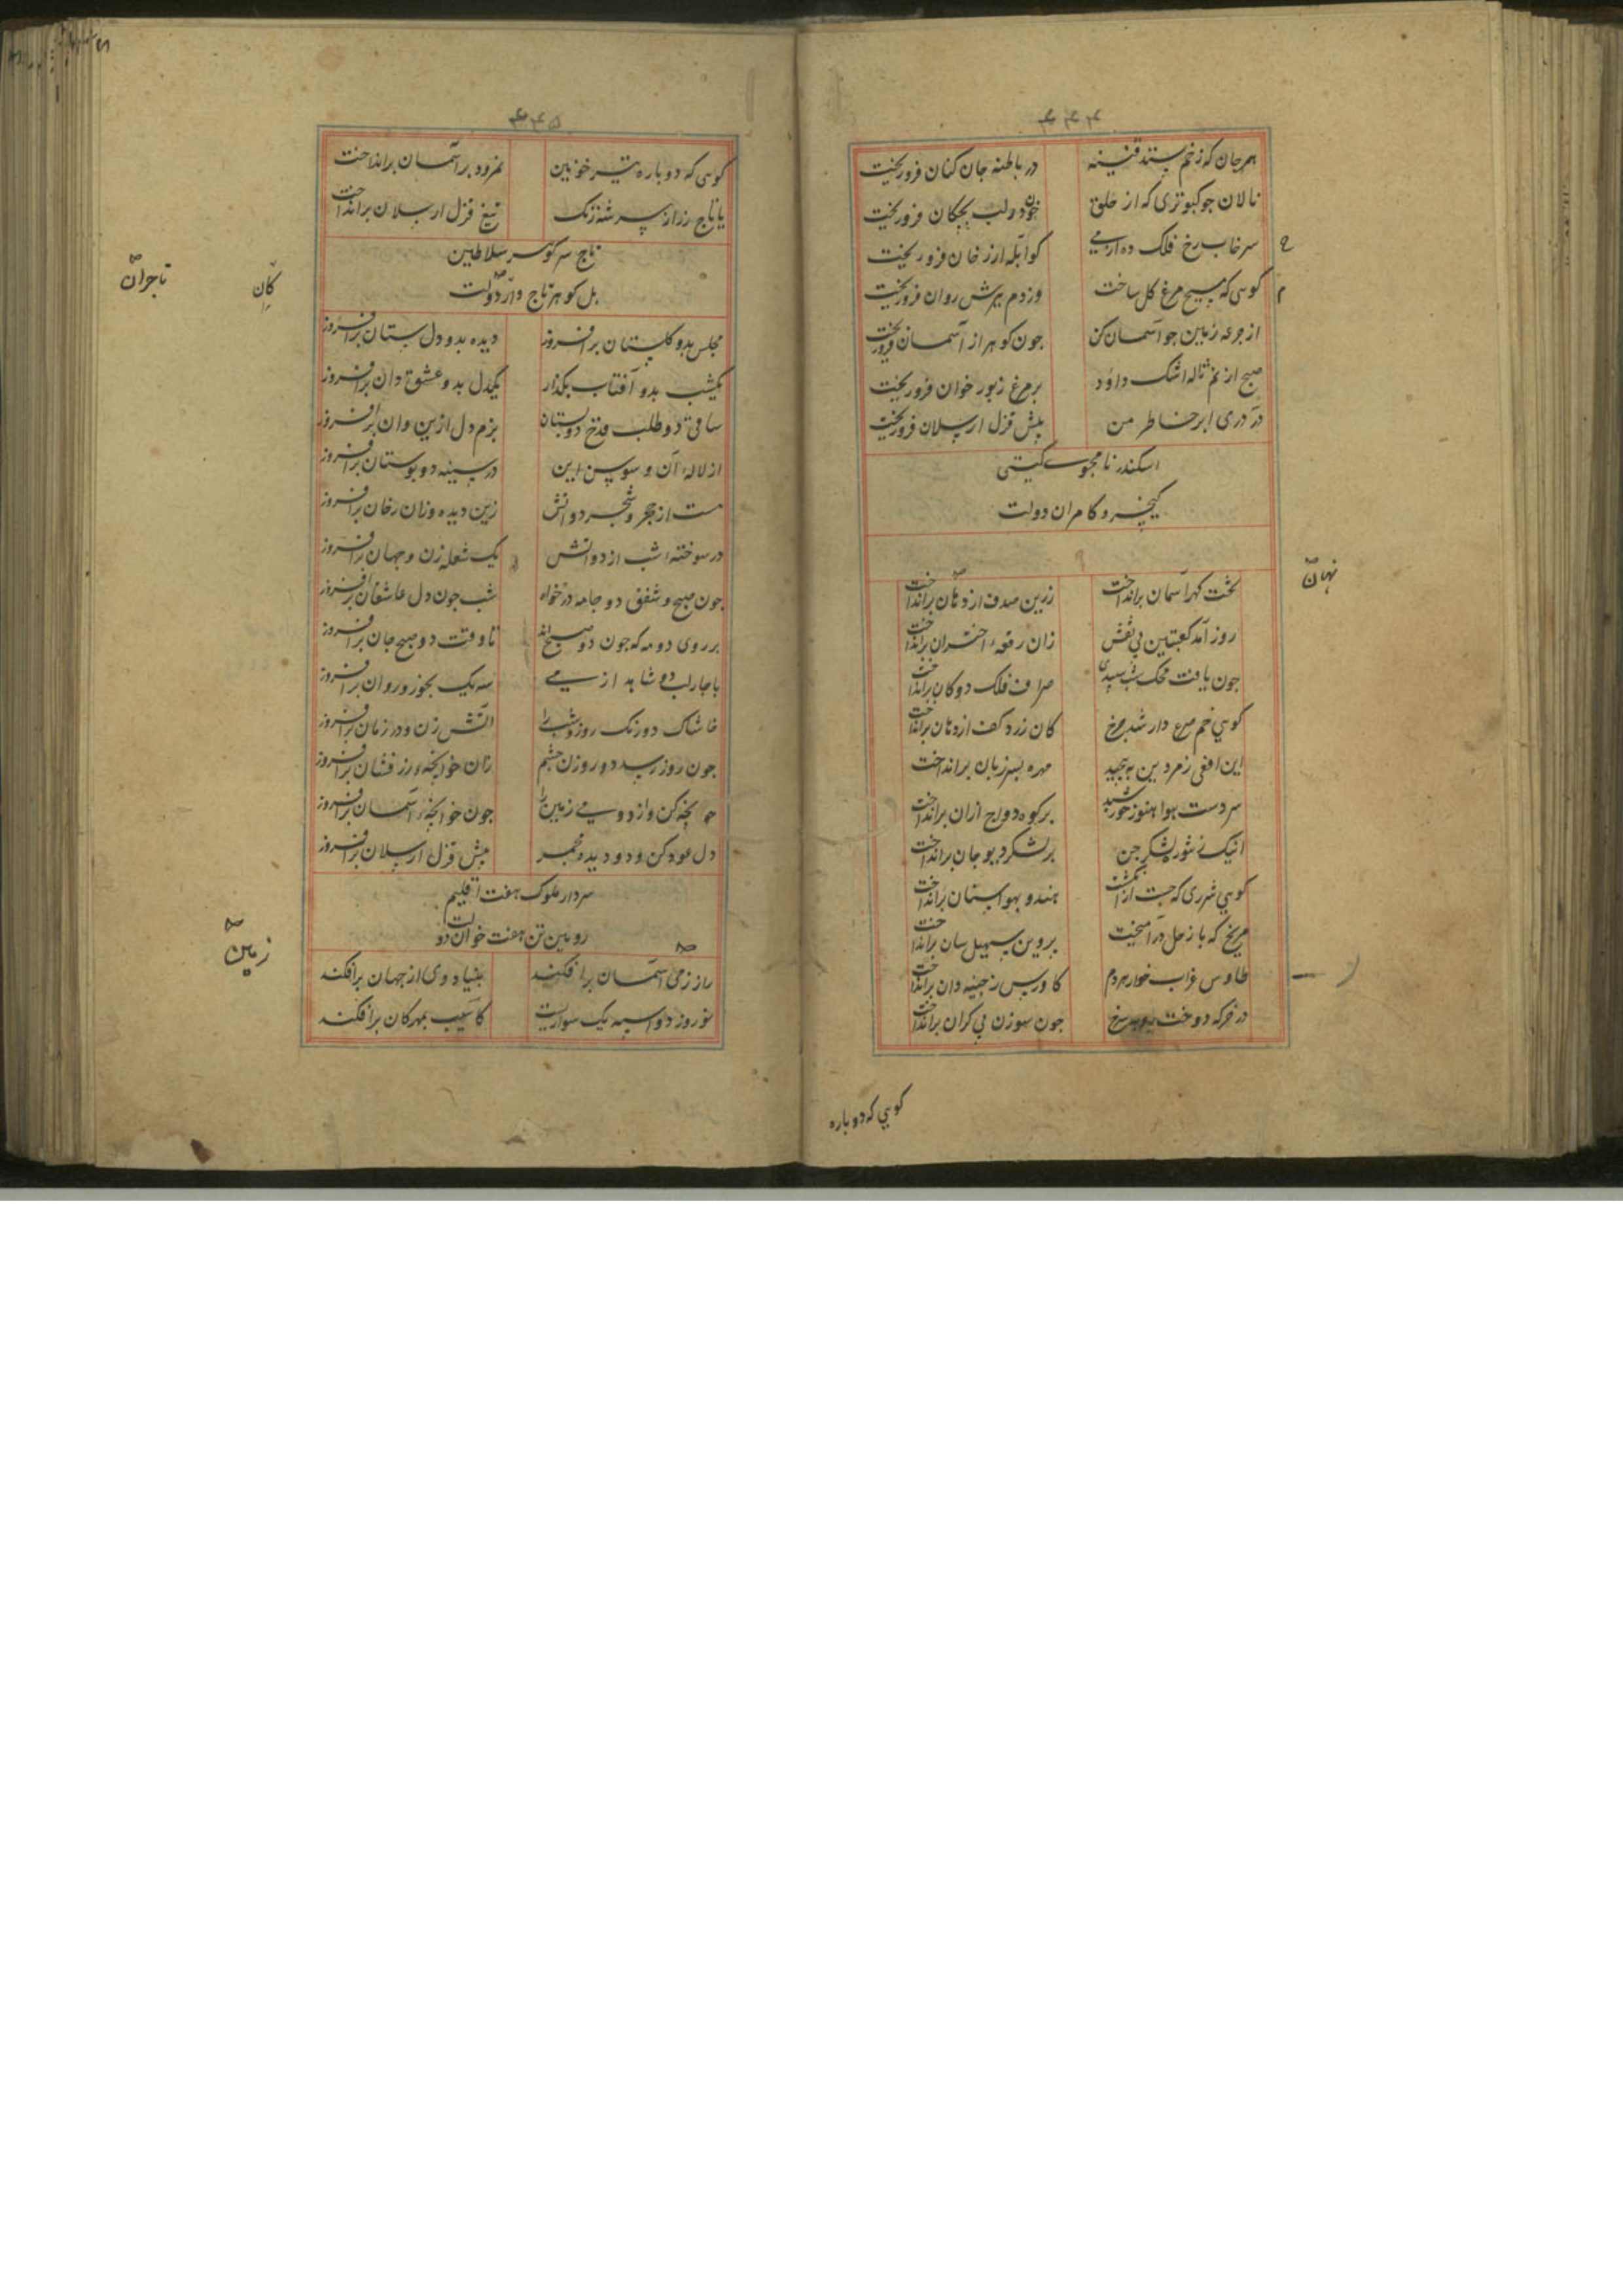 هر جان که ز خم ستد قنینه
در باطنه جان کنان فرو ریخت
نالان جو کبوتری که از حلق
خون دو لب بچکان فرو ریخت
سرخاب رخ فلک ده از می
کو ابله از رخان فرو ریخت
کوسی که مسیح مرغ کل ساخت
وز دم برش روان فرو ریخت
از جرعه زمین جو آسمان کن
جون کوهر از آسمان فرو ریخت
صبح از نم ژاله اشک داود
بر مرغ زبور خوان فرو ریخت
در دری ابر خاطر من
پیش قزل ارسلان فرو ریخت
اسکندر نامجوی کیتی
کیخسرو کامران دولت
تخت کهر آسمان برانداخت
زرین صدف از دهان برانداخت
روز آمد کعبتین بی نقش
زان رقعه اختران برانداخت
جون یافت محک شب سپیدی
صراف فلک دوکان برانداخت
کویی خم صرع دار شد جرخ
کان زرد کف از دهان برانداخت
این افعی زمردین بپیچید
مهره بسر زبان برانداخت
سردست هوا هنوز خورشید
بر کوه دواج ازان برانداخت
انیک نی شور لشکر جن
بر لشکر دیو جان برانداخت
کویی شرری که جست از آتش
هندو بهوا ستان برانداخت
مریخ که با زحل در آمیخت
پروین سهیل سان برانداخت
طاوس غراب خوار هر دم
کاورس ز جینه دان برانداخت
در خرکه دوخت روبه سرخ
جون سوزن بی کران برانداخت
نهان
کویی که دوباره
کوسی که دوباره تیر خونین
نمرود بر آسمان برانداخت
یا تاج زر از سر شه زنک
تیغ قزل ارسلان برانداخت
تاج سر کوهر سلاطین
بل کوهر تاج دار دولت
کان
تاجران
مجلس بدو کلستان برافروز
دیده بدو دل ستان برافروز
یکشب بدو آفتاب بکذار
یکدل بدو عشق دان برافروز
ساقی دو طلب قدح دو بستان
بزم دل ازین وان برافروز
از لاله آن و سوسن این
در سینه دو بوستان برافروز
مست از حجر و شجر دو آتش
زین دیده وزان رخان برافروز
در سوخته شب از دو آتش
یک شعله زن و جهان برافروز
جون صبح و شفق دو جامه درخواه
شب جون دل عاشقان برافروز
بر روی دو مه که جون دو صبح اند
تا وقت دو صبح جان برافروز
با جار لب دو شاهد از می
سه یک بخور و روان برافروز
خاشاک دو رنک روز و شب را
آتش زن و در زمان برافروز
جون روز رسد دو روزن جشم
زان خوانجه زر فشان برافروز
خوانجه کن و از دو می زمین را
جون خوانجه آسمان برافروز
دل عود کن و دو دیده مجمر
پیش قزل ارسلان برافروز
سردار ملوک هفت اقلیم
رویین تن هفت خوان دولت
راز زمی آسمان برافکند
بنیاد دی از جهان برافکند
نوروز دو اسبه یک سواریست
کاسیب بمهرکان برافکند
زمین